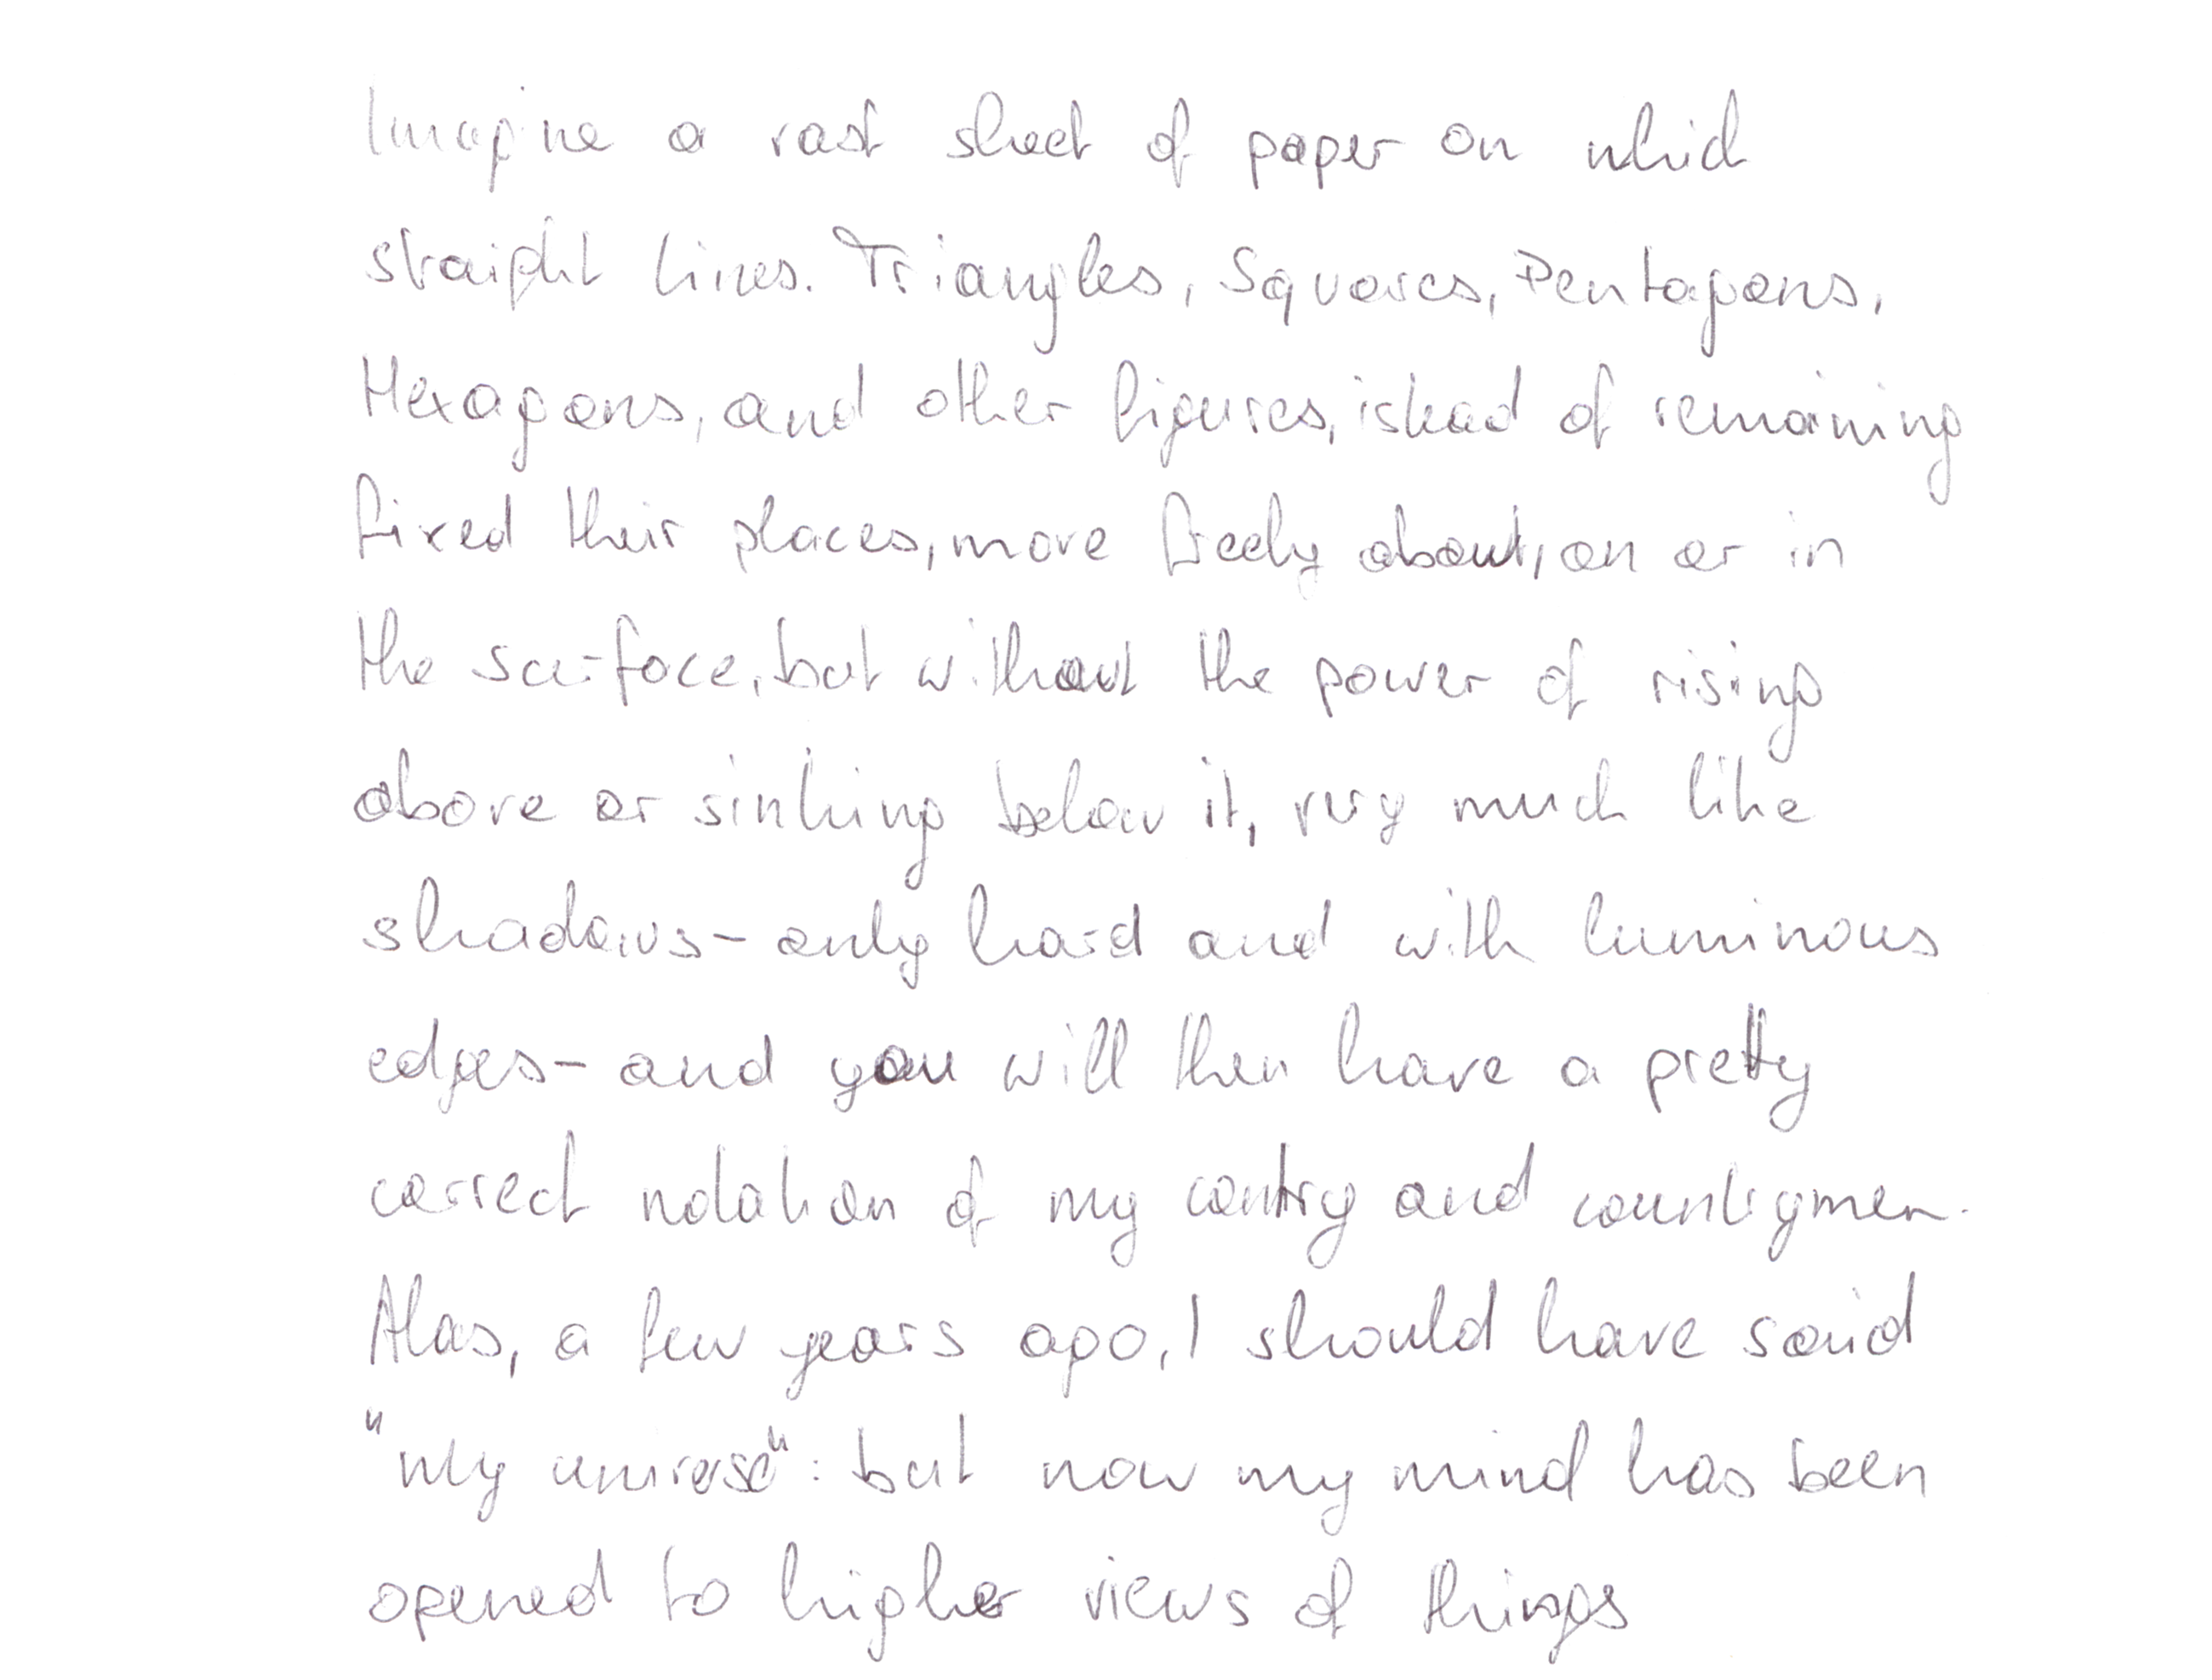 Imagine a vast sheet of paper on which
straight lines. Triangles, Squares, Pentagons,
Hexagons, and other figures, istead of remaining
fixed their places, move freely about, on or in
the surface, but without the power of rising
above or sinking below it, very much like
shadows - only hard and with luminous
edges - and you will then have a pretty
correct notation of my contry and countrymen.
Alas, a few years ago, I should have said
"my universe": but now my mind has been
opened to higher views of things